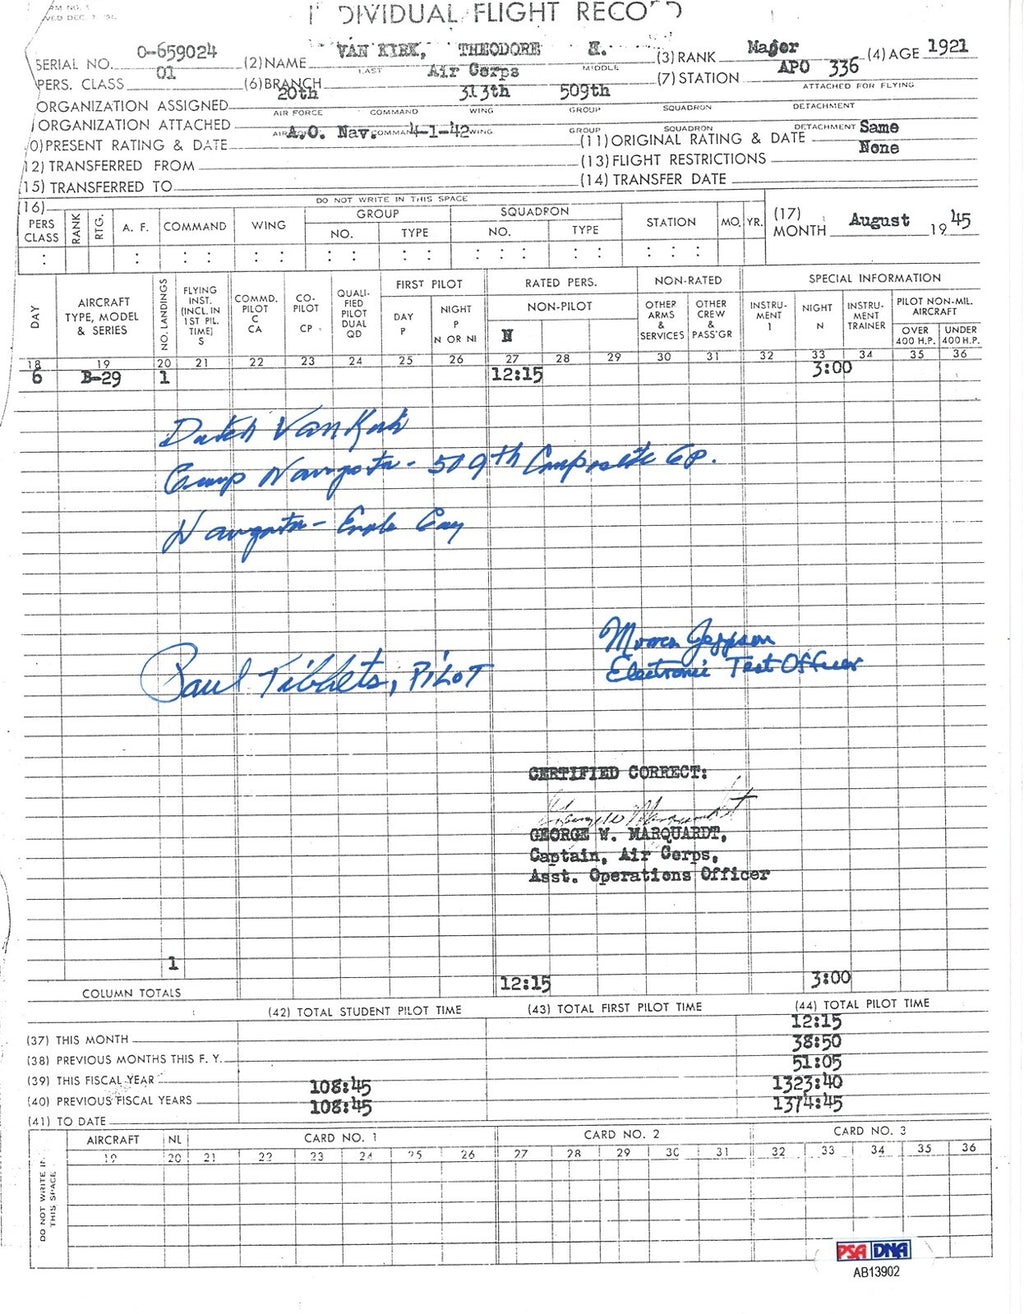 INDIVIDUAL FLIGHT RECORD
SERIAL NO. 0-659024 (2) NAME VAN KIRK, THEODORE (3) RANK Major (4) AGE 1921
LAST MIDDLE
PERS. CLASS 01 (6) BRANCH Air Corps (7) STATION APO 336
ORGANIZATION ASSIGNED 20th 313th 509th ATTACHED FOR FLYING
AIR FORCE COMMAND WING GROUP SQUADRON DETACHMENT
ORGANIZATION ATTACHED
COMMAND WING GROUP SQUADRON DETACHMENT
0) PRESENT RATING & DATE A.O. Nav. 4-1-42 (11) ORIGINAL RATING & DATE Same
12) TRANSFERRED FROM (13) FLIGHT RESTRICTIONS None
15) TRANSFERRED TO (14) TRANSFER DATE
(16) DO NOT WRITE IN THIS SPACE
PERS CLASS RANK RTG. A. F. COMMAND WING GROUP NO. TYPE SQUADRON NO. TYPE STATION MO. YR. (17) MONTH August 1945
DAY AIRCRAFT TYPE, MODEL & SERIES NO. LANDINGS FLYING INST. (INCL. IN 1ST PIL. TIME) S COMMD. PILOT C CA CO-PILOT CP QUALI-FIED PILOT DUAL QD FIRST PILOT DAY P NIGHT P N OR NI RATED PERS. NON-PILOT N NON-RATED OTHER ARMS & SERVICES OTHER CREW & PASS'GR SPECIAL INFORMATION INSTRU-MENT I NIGHT N INSTRU-MENT TRAINER PILOT NON-MIL. AIRCRAFT OVER 400 H.P. UNDER 400 H.P.
18 19 20 21 22 23 24 25 26 27 28 29 30 31 32 33 34 35 36
6 B-29 1 12:15 3:00
Dutch VanKirk
Group Navigator - 509th Composite Gp.
Navigator - Enola Gay
Morris Jeppson
Electronic Test Officer
Paul Tibbets, PILOT
CERTIFIED CORRECT:
George W Marquardt
GEORGE W. MARQUARDT,
Captain, Air Corps,
Asst. Operations Officer
1 12:15 3:00
COLUMN TOTALS
(42) TOTAL STUDENT PILOT TIME (43) TOTAL FIRST PILOT TIME (44) TOTAL PILOT TIME
12:15
(37) THIS MONTH 38:50
(38) PREVIOUS MONTHS THIS F. Y. 51:05
(39) THIS FISCAL YEAR 108:45 1323:40
(40) PREVIOUS FISCAL YEARS 108:45 1374:45
(41) TO DATE
DO NOT WRITE IN THIS SPACE
AIRCRAFT NL CARD NO. 1 CARD NO. 2 CARD NO. 3
19 20 21 22 23 24 25 26 27 28 29 30 31 32 33 34 35 36
PSA DNA
AB13902